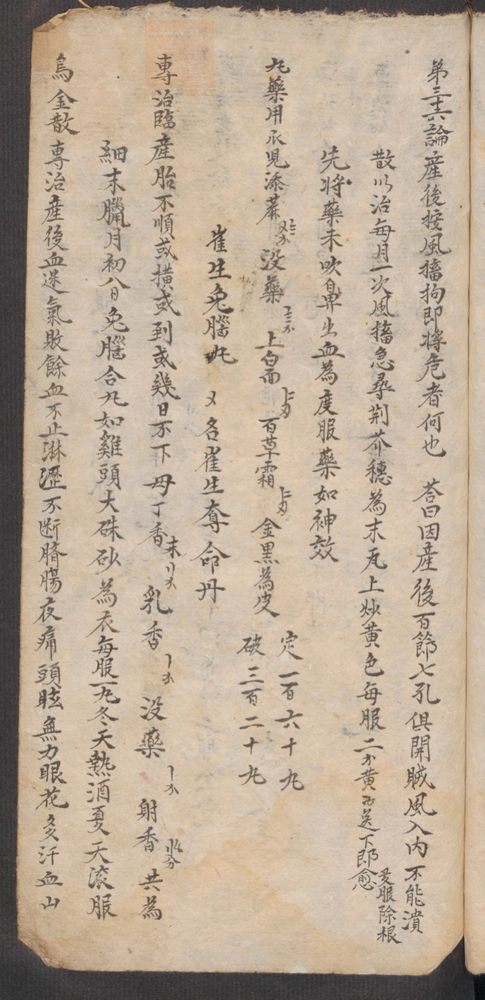 第三十六論產後按風搐拘即將危者何也　荅曰因產後百節七孔俱開賊風入內不能潰
散以治每月一次風搐急尋荆芥穗為末瓦上炒黄色每服二分黄酒送下即愈 多服除根
先将藥末吹鼻出血為度服藥如神效
丸藥用 没藥 上白面 百草霜 金黑為皮
定一百六十丸
破三百二十丸
崔生兔腦丸　又名崔生奪命丹
專治臨產胎不順或橫或到或幾日不下母丁香 末 乳香 没藥 射香 共為
細末臘月初八日兔腦合丸如雞頭大硃砂為衣每服一丸冬天熱酒夏天滾服
烏金散專治產後血迷氣敗餘血不止淋瀝不断臍腸夜痛頭眩無力眼花多汗血山